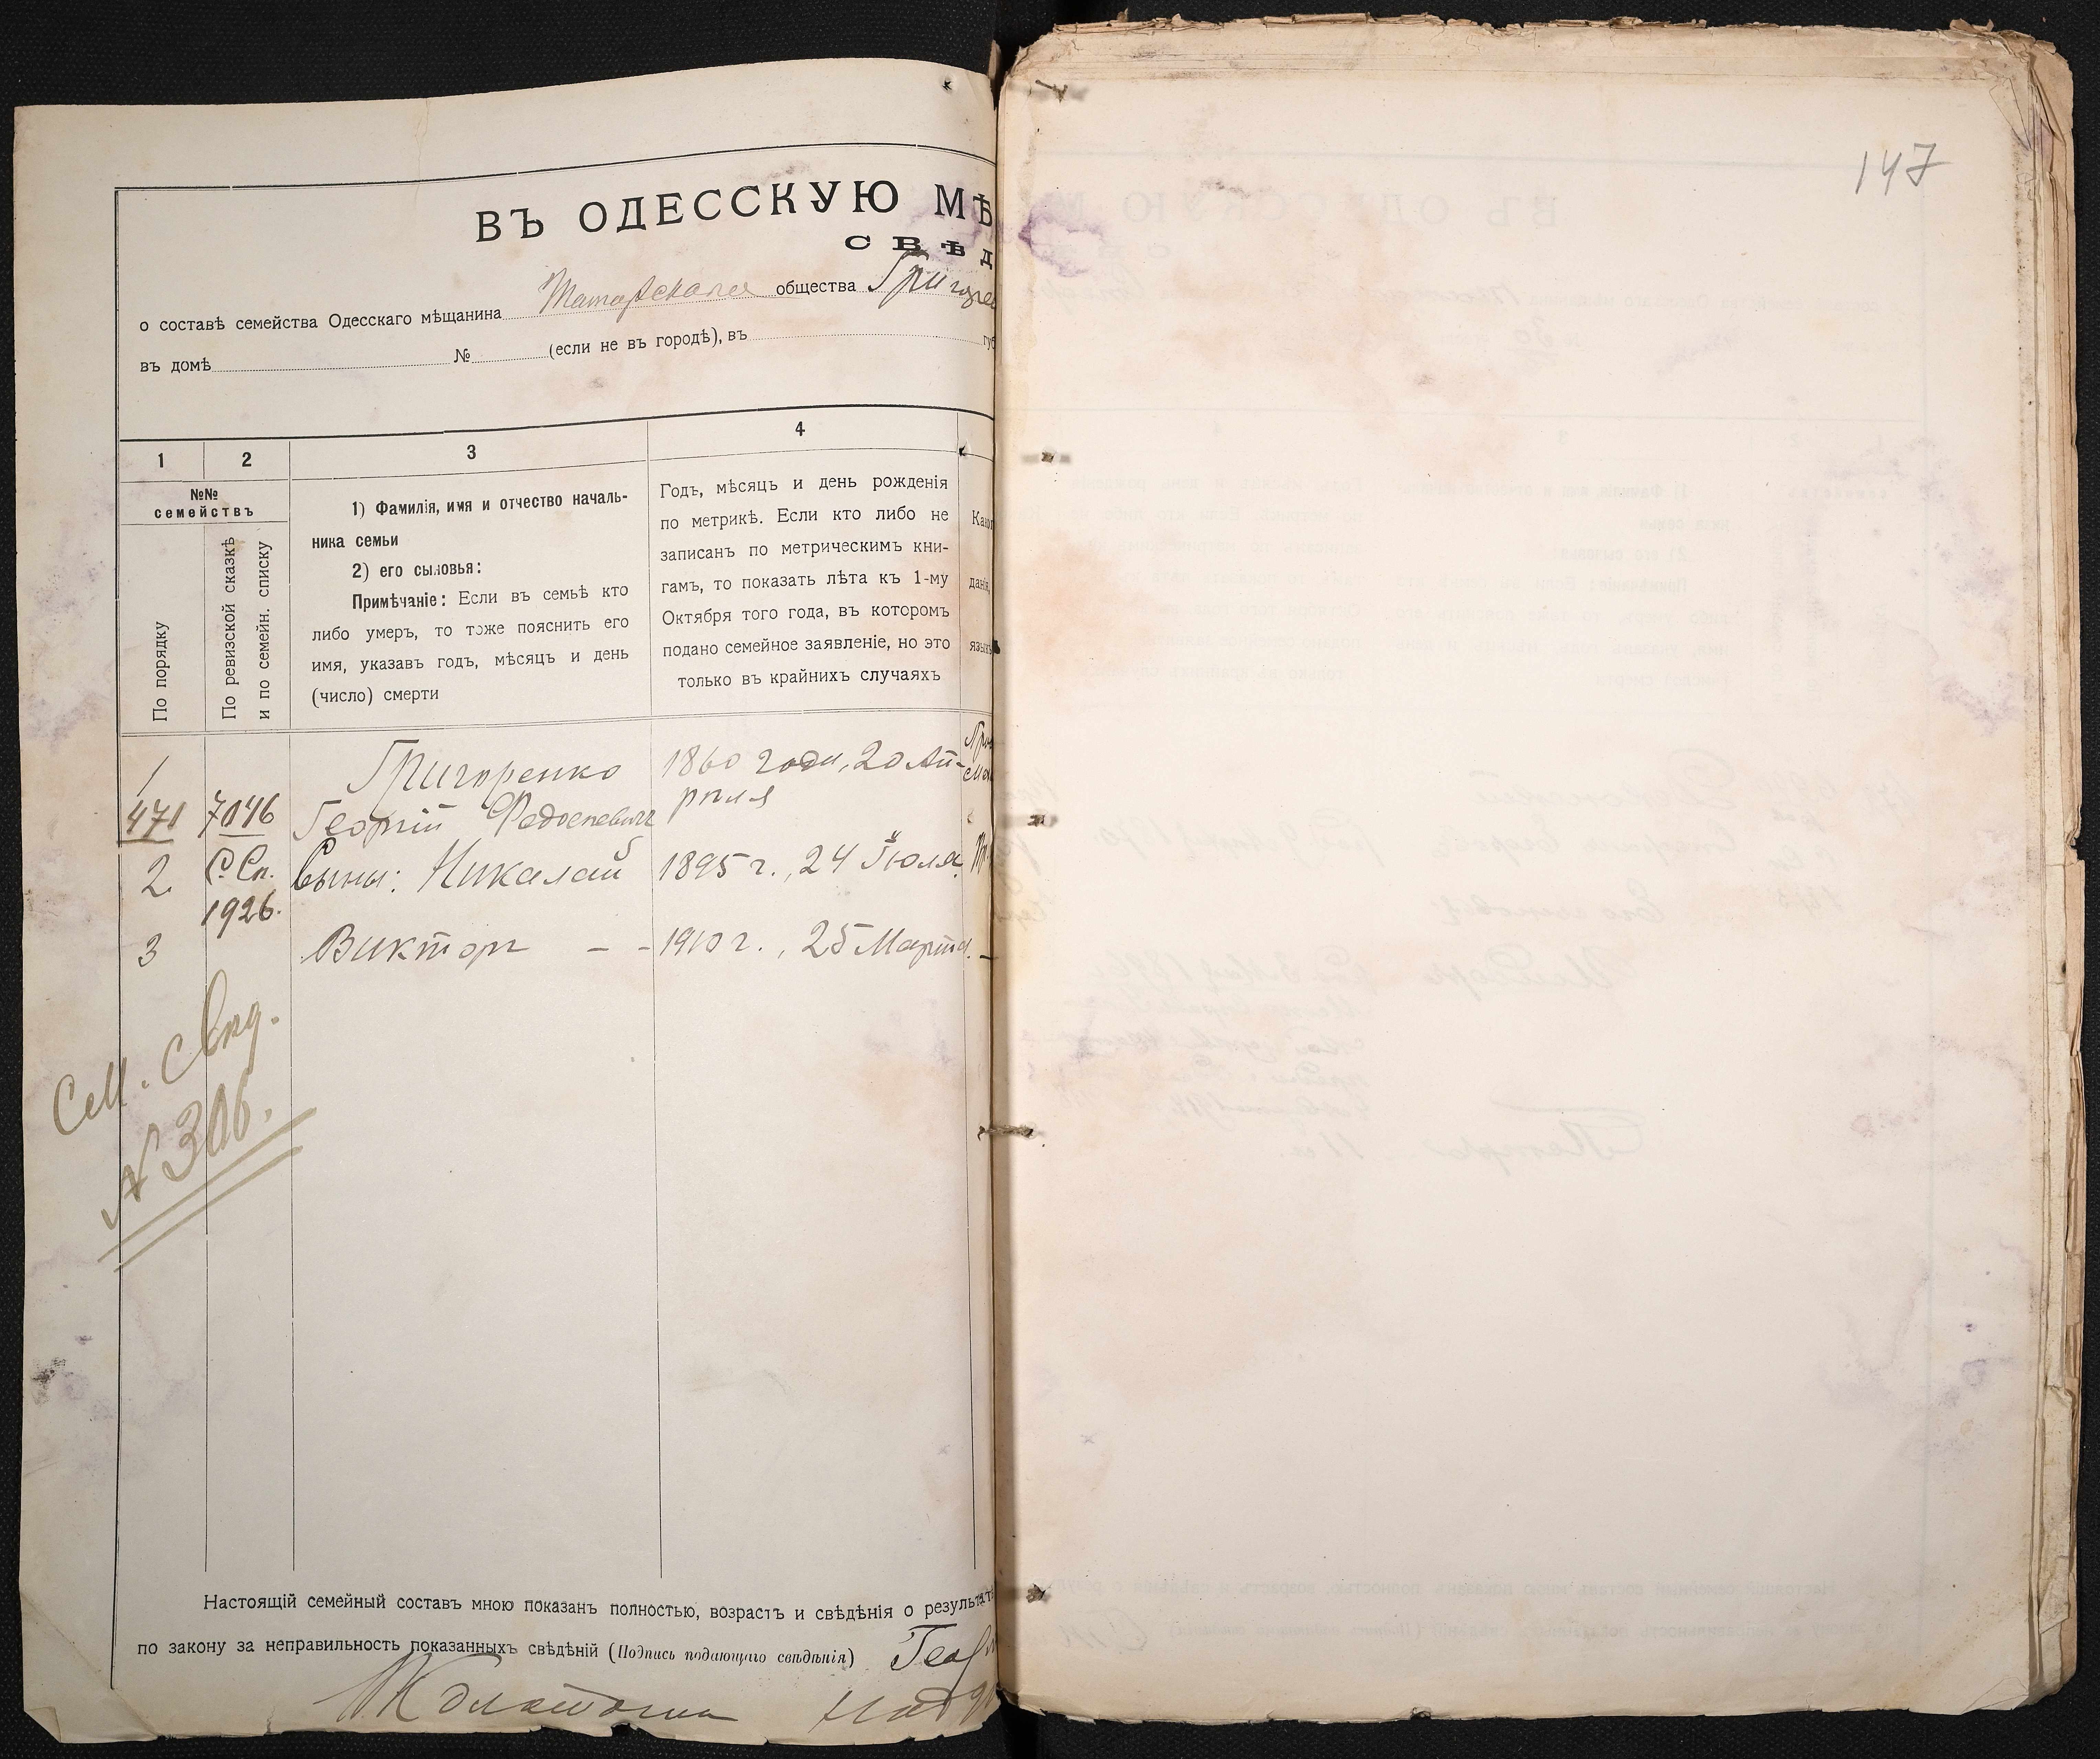 ВЪ ОДЕССКУЮ МѢ
СВѢД
о составѣ семейства Одесскаго мѣщанина Татарскаго общества Григорен
въ домѣ № (если не въ городѣ), въ губ
1 2 3 4
№№ семействъ
По порядку
По ревизской сказкѣ и по семейн. списку
1) Фамилія, имя и отчество началь-
ника семьи
2) его сыновья:
Примѣчаніе: Если въ семьѣ кто
либо умеръ, то тоже пояснить его
имя, указавъ годъ, мѣсяцъ и день
(число) смерти
Годъ, мѣсяцъ и день рожденія
по метрикѣ. Если кто либо не
записанъ по метрическимъ кни-
гамъ, то показать лѣта къ 1-му
Октября того года, въ которомъ
подано семейное заявленіе, но это
только въ крайнихъ случаяхъ
Како
данія,
языкъ
1 Григоренко 1860 года, 20 Ап-
471 7046 Георгій Федосѣевичъ рѣля
2 С. Сп. Сыны: Николай 1895 г., 24 Іюля.
1926.
3 Викторъ - - 1910 г., 25 Марта.
Сем. свѣд.
№ 306.
Настоящій семейный составъ мною показанъ полностью, возрастъ и свѣдѣнія о результат
по закону за неправильность показанныхъ свѣдѣній (Подпись подающаго свѣдѣнія) Геор
147